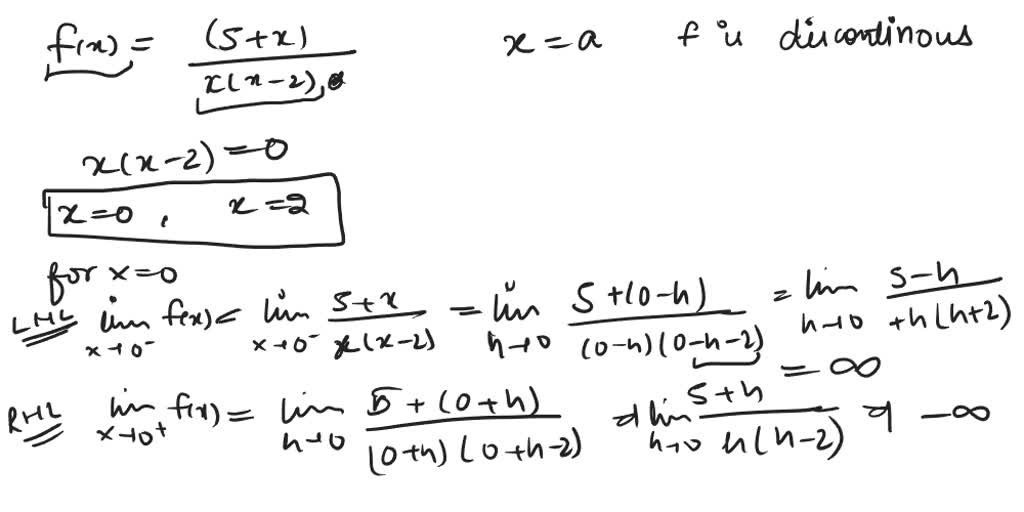 f(x) = (5+x) / x(x-2), x = a f is discontinous
x(x-2) = 0
x=0 , x=2
for x=0
LHL lim x→0⁻ f(x) = lim x→0⁻ 5+x / x(x-2) = lim h→0 5+(0-h) / (0-h)(0-h-2) = lim h→0 5-h / +h(h+2)
= ∞
RHL lim x→0⁺ f(x) = lim h→0 5+(0+h) / (0+h)(0+h-2) = lim h→0 5+h / h(h-2) = -∞